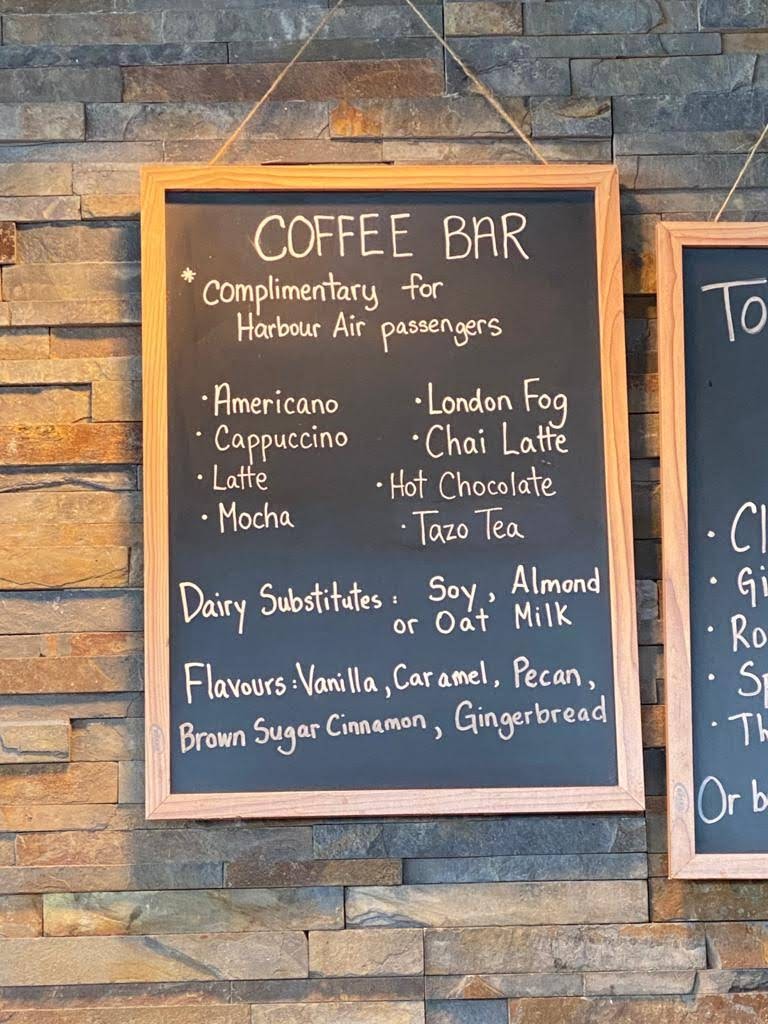 COFFEE BAR
* Complimentary for
Harbour Air passengers
· Americano
· Cappuccino
· Latte
· Mocha
· London Fog
· Chai Latte
· Hot Chocolate
· Tazo Tea
Dairy Substitutes: Soy, Almond
or Oat Milk
Flavours: Vanilla, Caramel, Pecan,
Brown Sugar Cinnamon, Gingerbread
Or